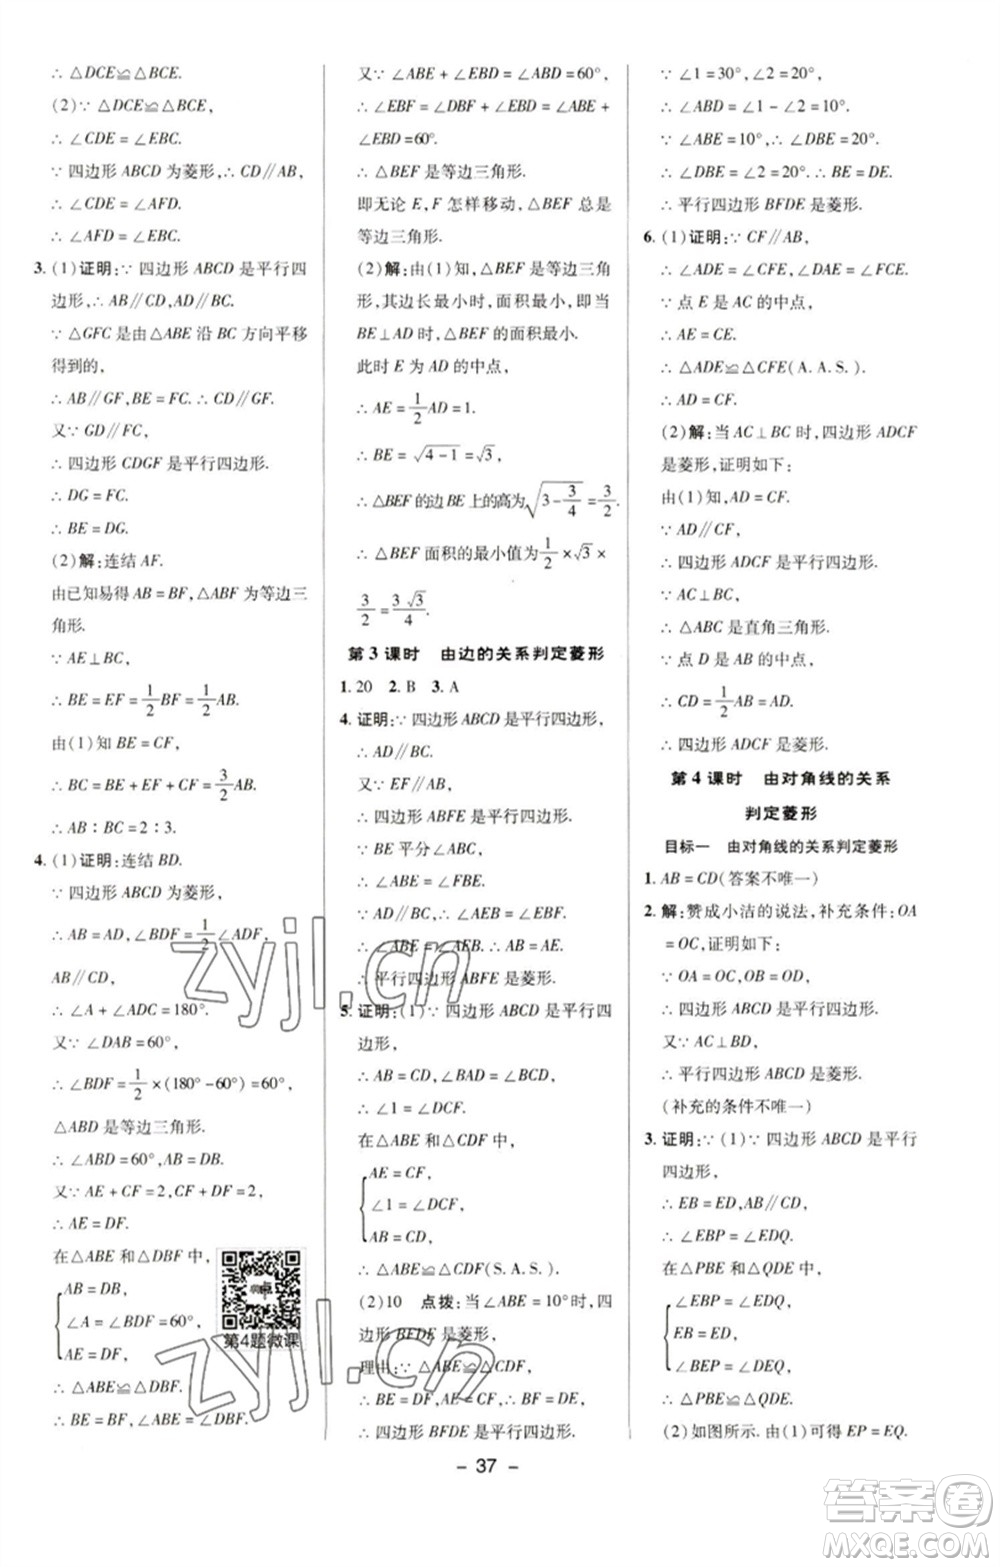 ∴ △DCE≌△BCE.
(2)∵ △DCE≌△BCE,
∴ ∠CDE = ∠EBC.
∵ 四边形 ABCD 为菱形,∴ CD∥AB,
∴ ∠CDE = ∠AFD.
∴ ∠AFD = ∠EBC.
3. (1)证明:∵ 四边形 ABCD 是平行四
边形,∴ AB∥CD,AD∥BC.
∵ △GFC 是由△ABE 沿 BC 方向平移
得到的,
∴ AB∥GF,BE = FC. ∴ CD∥GF.
又∵ GD∥FC,
∴ 四边形 CDGF 是平行四边形.
∴ DG = FC.
∴ BE = DG.
(2)解:连结 AF.
由已知易得 AB = BF,△ABF 为等边三
角形.
∵ AE⊥BC,
∴ BE = EF = 1/2 BF = 1/2 AB.
由(1)知 BE = CF,
∴ BC = BE + EF + CF = 3/2 AB.
∴ AB∶BC = 2∶3.
4. (1)证明:连结 BD.
∵ 四边形 ABCD 为菱形,
∴ AB = AD,∠BDF = 1/2 ∠ADF,
AB∥CD,
∴ ∠A + ∠ADC = 180°.
又∵ ∠DAB = 60°,
∴ ∠BDF = 1/2 ×(180° - 60°) = 60°,
△ABD 是等边三角形.
∴ ∠ABD = 60°,AB = DB.
又∵ AE + CF = 2,CF + DF = 2,
∴ AE = DF.
在△ABE 和△DBF 中,
AB = DB,
∠A = ∠BDF = 60°,
AE = DF,
第4题微课
∴ △ABE≌△DBF.
∴ BE = BF,∠ABE = ∠DBF.
又∵ ∠ABE + ∠EBD = ∠ABD = 60°,
∴ ∠EBF = ∠DBF + ∠EBD = ∠ABE +
∠EBD = 60°.
∴ △BEF 是等边三角形.
即无论 E,F 怎样移动,△BEF 总是
等边三角形.
(2)解:由(1)知,△BEF 是等边三角
形,其边长最小时,面积最小,即当
BE⊥AD 时,△BEF 的面积最小.
此时 E 为 AD 的中点,
∴ AE = 1/2 AD = 1.
∴ BE = √(4 - 1) = √3,
∴ △BEF 的边 BE 上的高为 √(3 - 3/4) = 3/2.
∴ △BEF 面积的最小值为 1/2 × √3 ×
3/2 = 3√3/4.
第 3 课时 由边的关系判定菱形
1. 20 2. B 3. A
4. 证明:∵ 四边形 ABCD 是平行四边形,
∴ AD∥BC.
又∵ EF∥AB,
∴ 四边形 ABFE 是平行四边形.
∵ BE 平分∠ABC,
∴ ∠ABE = ∠FBE.
∵ AD∥BC,∴ ∠AEB = ∠EBF.
∴ ∠ABE = ∠AEB. ∴ AB = AE.
∴ 平行四边形 ABFE 是菱形.
5. 证明:(1)∵ 四边形 ABCD 是平行四
边形,
∴ AB = CD,∠BAD = ∠BCD.
∴ ∠1 = ∠DCF.
在△ABE 和△CDF 中,
AE = CF,
∠1 = ∠DCF,
AB = CD,
∴ △ABE≌△CDF(S. A. S.).
(2)10 点拨:当∠ABE = 10°时,四
边形 BFDE 是菱形,
理由:∵ △ABE≌△CDF,
∴ BE = DF,AE = CF,
∴ 四边形 BFDE 是平行四边形.
∵ ∠1 = 30°,∠2 = 20°,
∴ ∠ABD = ∠1 - ∠2 = 10°.
∵ ∠ABE = 10°,∴ ∠DBE = 20°.
∴ ∠DBE = ∠2 = 20°. ∴ BE = DE.
∴ 平行四边形 BFDE 是菱形.
6. (1)证明:∵ CF∥AB,
∴ ∠ADE = ∠CFE,∠DAE = ∠FCE.
∵ 点 E 是 AC 的中点,
∴ AE = CE.
∴ △ADE≌△CFE(A. A. S.).
∴ AD = CF.
(2)解:当 AC⊥BC 时,四边形 ADCF
是菱形,证明如下:
由(1)知,AD = CF.
∵ AD∥CF,
∴ 四边形 ADCF 是平行四边形.
∵ AC⊥BC,
∴ △ABC 是直角三角形.
∵ 点 D 是 AB 的中点,
∴ CD = 1/2 AB = AD.
∴ 四边形 ADCF 是菱形.
第 4 课时 由对角线的关系
判定菱形
目标一 由对角线的关系判定菱形
1. AB = CD(答案不唯一)
2. 解:赞成小洁的说法,补充条件:OA
= OC,证明如下:
∵ OA = OC,OB = OD,
∴ 四边形 ABCD 是平行四边形.
又∵ AC⊥BD,
∴ 平行四边形 ABCD 是菱形.
(补充的条件不唯一)
3. 证明:∵ (1)∵ 四边形 ABCD 是平行
四边形,
∴ EB = ED,AB∥CD,
∴ ∠EBP = ∠EDQ.
在△PBE 和△QDE 中,
∠EBP = ∠EDQ,
EB = ED,
∠BEP = ∠DEQ,
∴ △PBE≌△QDE.
(2)如图所示. 由(1)可得 EP = EQ.
- 37 -
zyjl.cn
zyjl.cn
答案圈
MXQE.COM